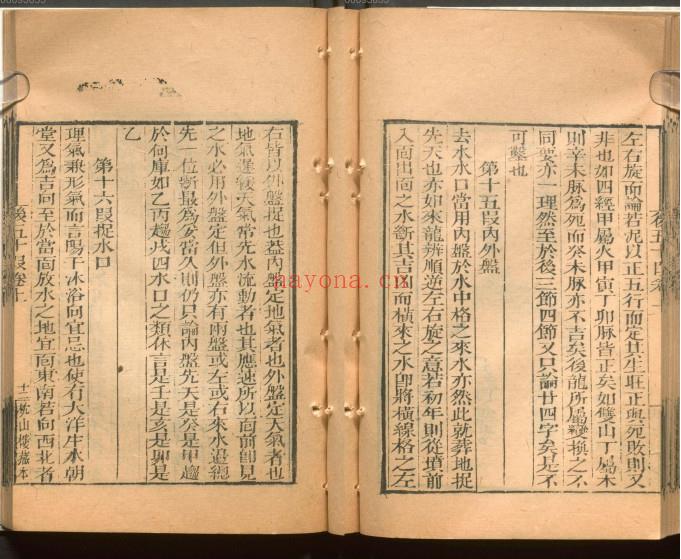 左右旋而論若泥以正五行而定其生旺正與死敗則又
非也如四經甲屬火甲寅丁卯脉皆正矣如雙山丁屬木
則辛未脉爲死而癸未脉亦不吉矣後龍所屬變換之不
同要亦一理然至於後三節四節又只論廿四字矣是不
可鑿也
第十五叚内外盤
去水水口當用内盤於水中格之來水亦然此就葬地捉
先天也亦如來龍辨順逆左右旋之意若初年則從墳前
入面出面之水斷其吉凶而横來之水卽將横線格之左
右皆以外盤捉也葢内盤定地氣者也外盤定天氣者也
地氣遲緩天氣常先水流動者也其應速所以面前卽見
之水必用外盤定但外盤亦有兩盤或左或右來水追總
先一位斷最爲妥當久則仍只論内盤先天是癸是甲趨
於何庫如乙丙趨戌四水口之類休言是壬是亥是卯是
乙
第十六叚捉水口
理氣兼形氣而言陽干沐浴向宜忌也使有大洋生水朝
堂又爲吉向至於當面放水之地宜向東南若向西北者
後五十叚卷上
十二 山樓藏本
nayona.cn